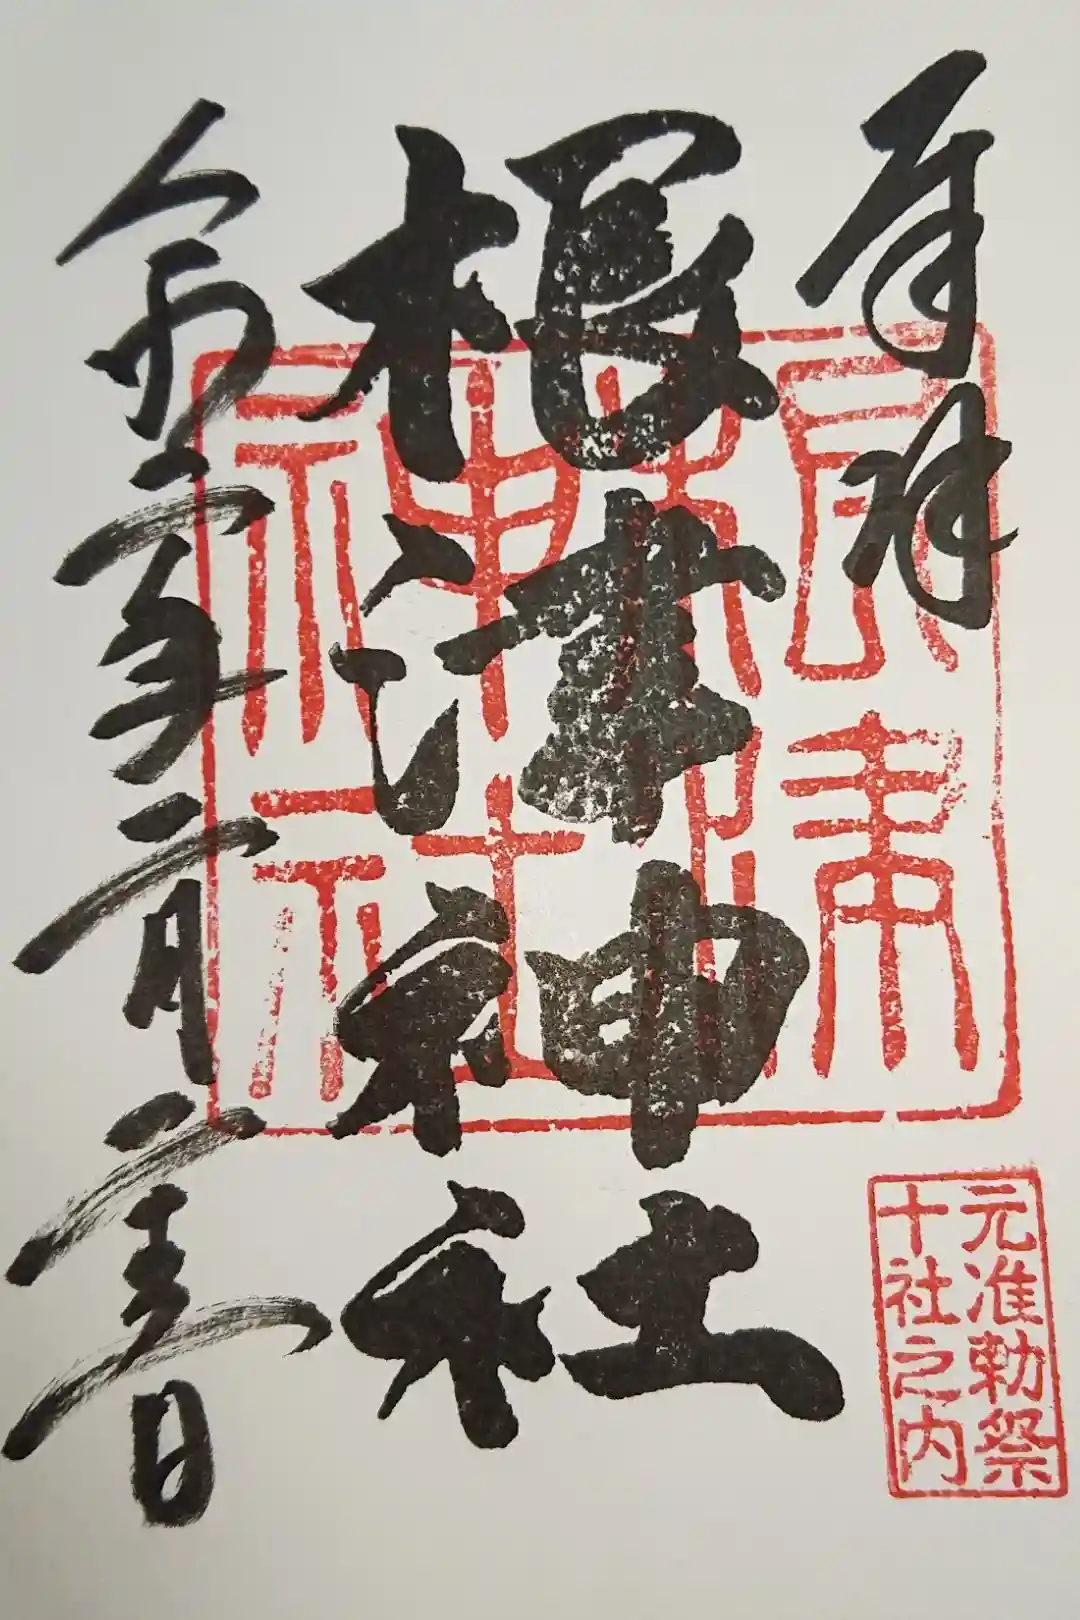 奉拝
根津神社
令和年二月二十日
根津
神社
元准勅祭
十社之内